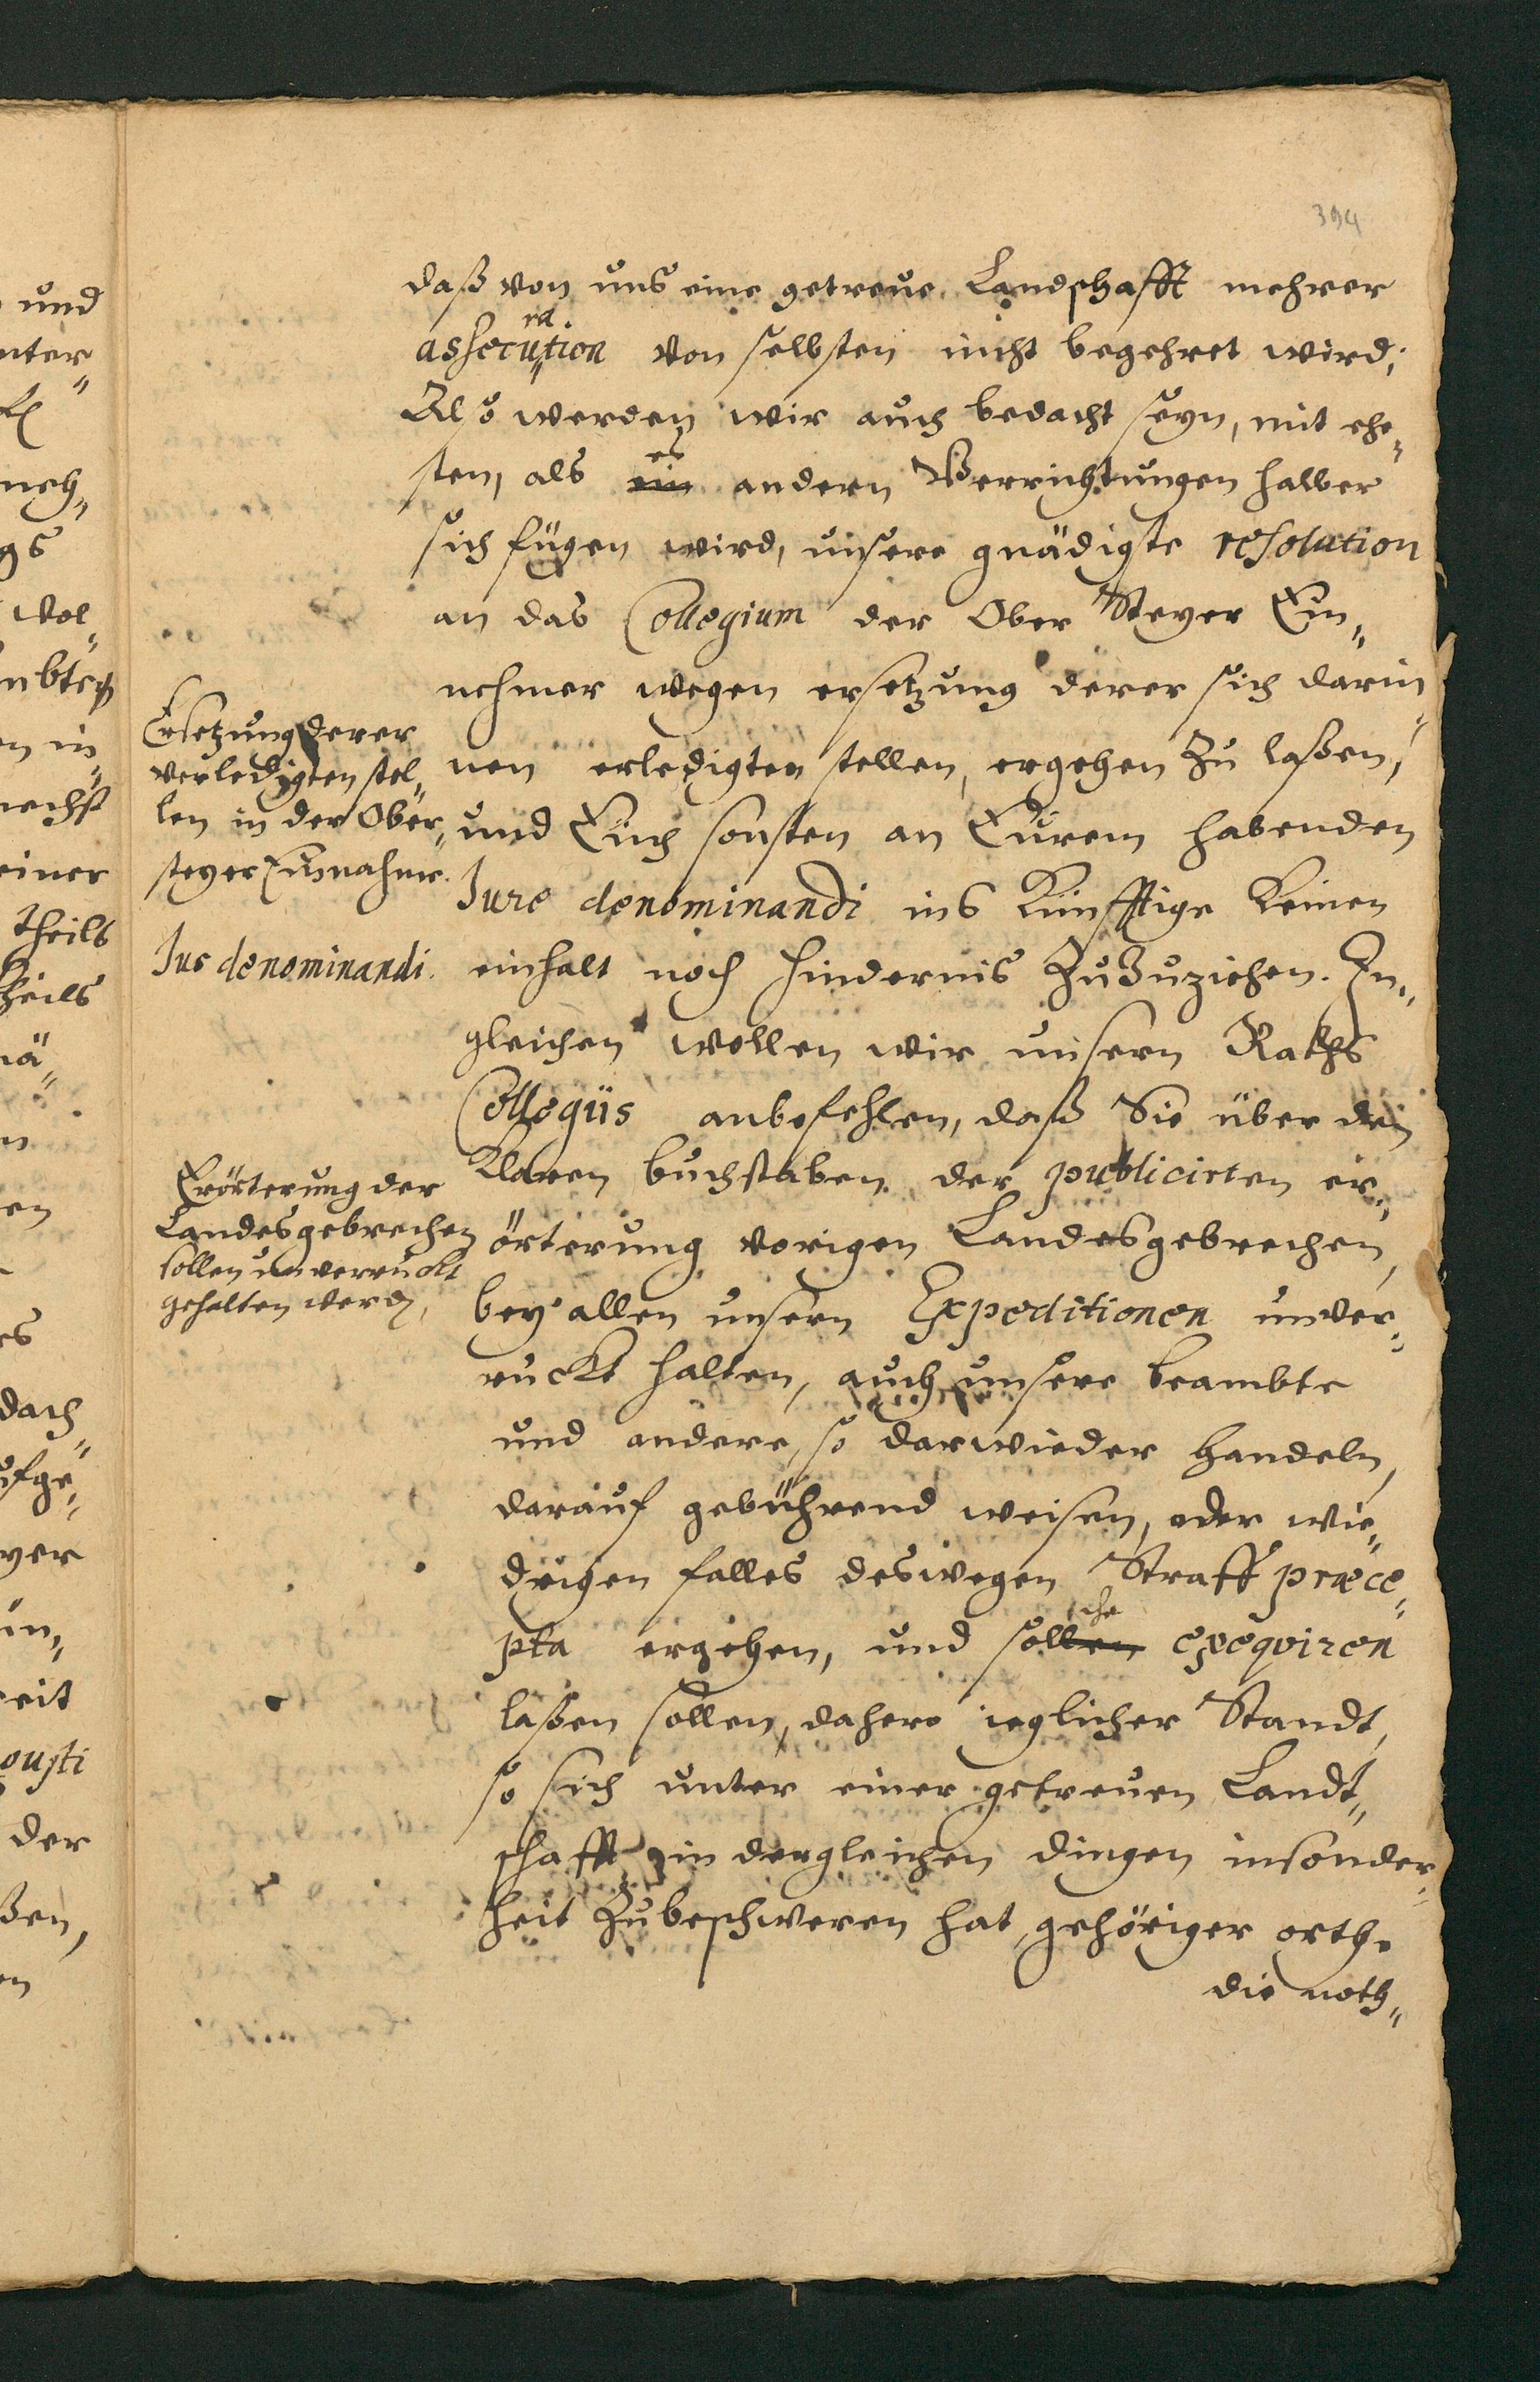 394
daß von uns eine getreue Landschafft mehrer
assecuration von selbsten nicht begehret wird;
Also werden wir auch bedacht seyn, mit ehe„
sten, als ein es andern Verrichtungen halber
sich fügen wird, unsere gnädigste resolution
an das Collegium der Ober Steyer Ein„
nehmer wegen ersetzung derer sich darin„
nen erledigten stellen, ergehen zu laßen,
und Euch sonsten an Eurem habenden
Jure denominandi ins Künfftige Keinen
einhalt noch hindernis zuzuziehen. In„
gleichen wollen wir unsern Raths
Collegiis anbefehlen, daß Sie über den
Klaren buchstaben der publicirten er„
örterung vorigen Landesgebrechen,
bey allen unsern Expeditionen unver„
ruckt halten, auch unsere beambte
und andere, so darwieder handeln,
darauf gebührend weisen, oder wie„
drigen falles deswegen Straff præce„
pta ergehen, und sollen che exeqviren
laßen sollen, dahero ieglicher Standt,
so sich unter einer getreuen Landt„
schafft in dergleichen dingen insonder„
heit zubeschweren hat, gehöriger orth.
die noth„
Ersetzung derer
verledigten stel„
len in der Ober„
steyer Einnahme.
Jus denominandi.
Erörterung der
Landesgebrechen
sollen unverruckt
gehalten werden,
und
nter„
neh„
gs
vol„
mbten
en in„
nechst
einer
theils
theils
nä„
n
en
es
dach„
ufge„
yer
ün„
eit
gusti
der
ßen,
en